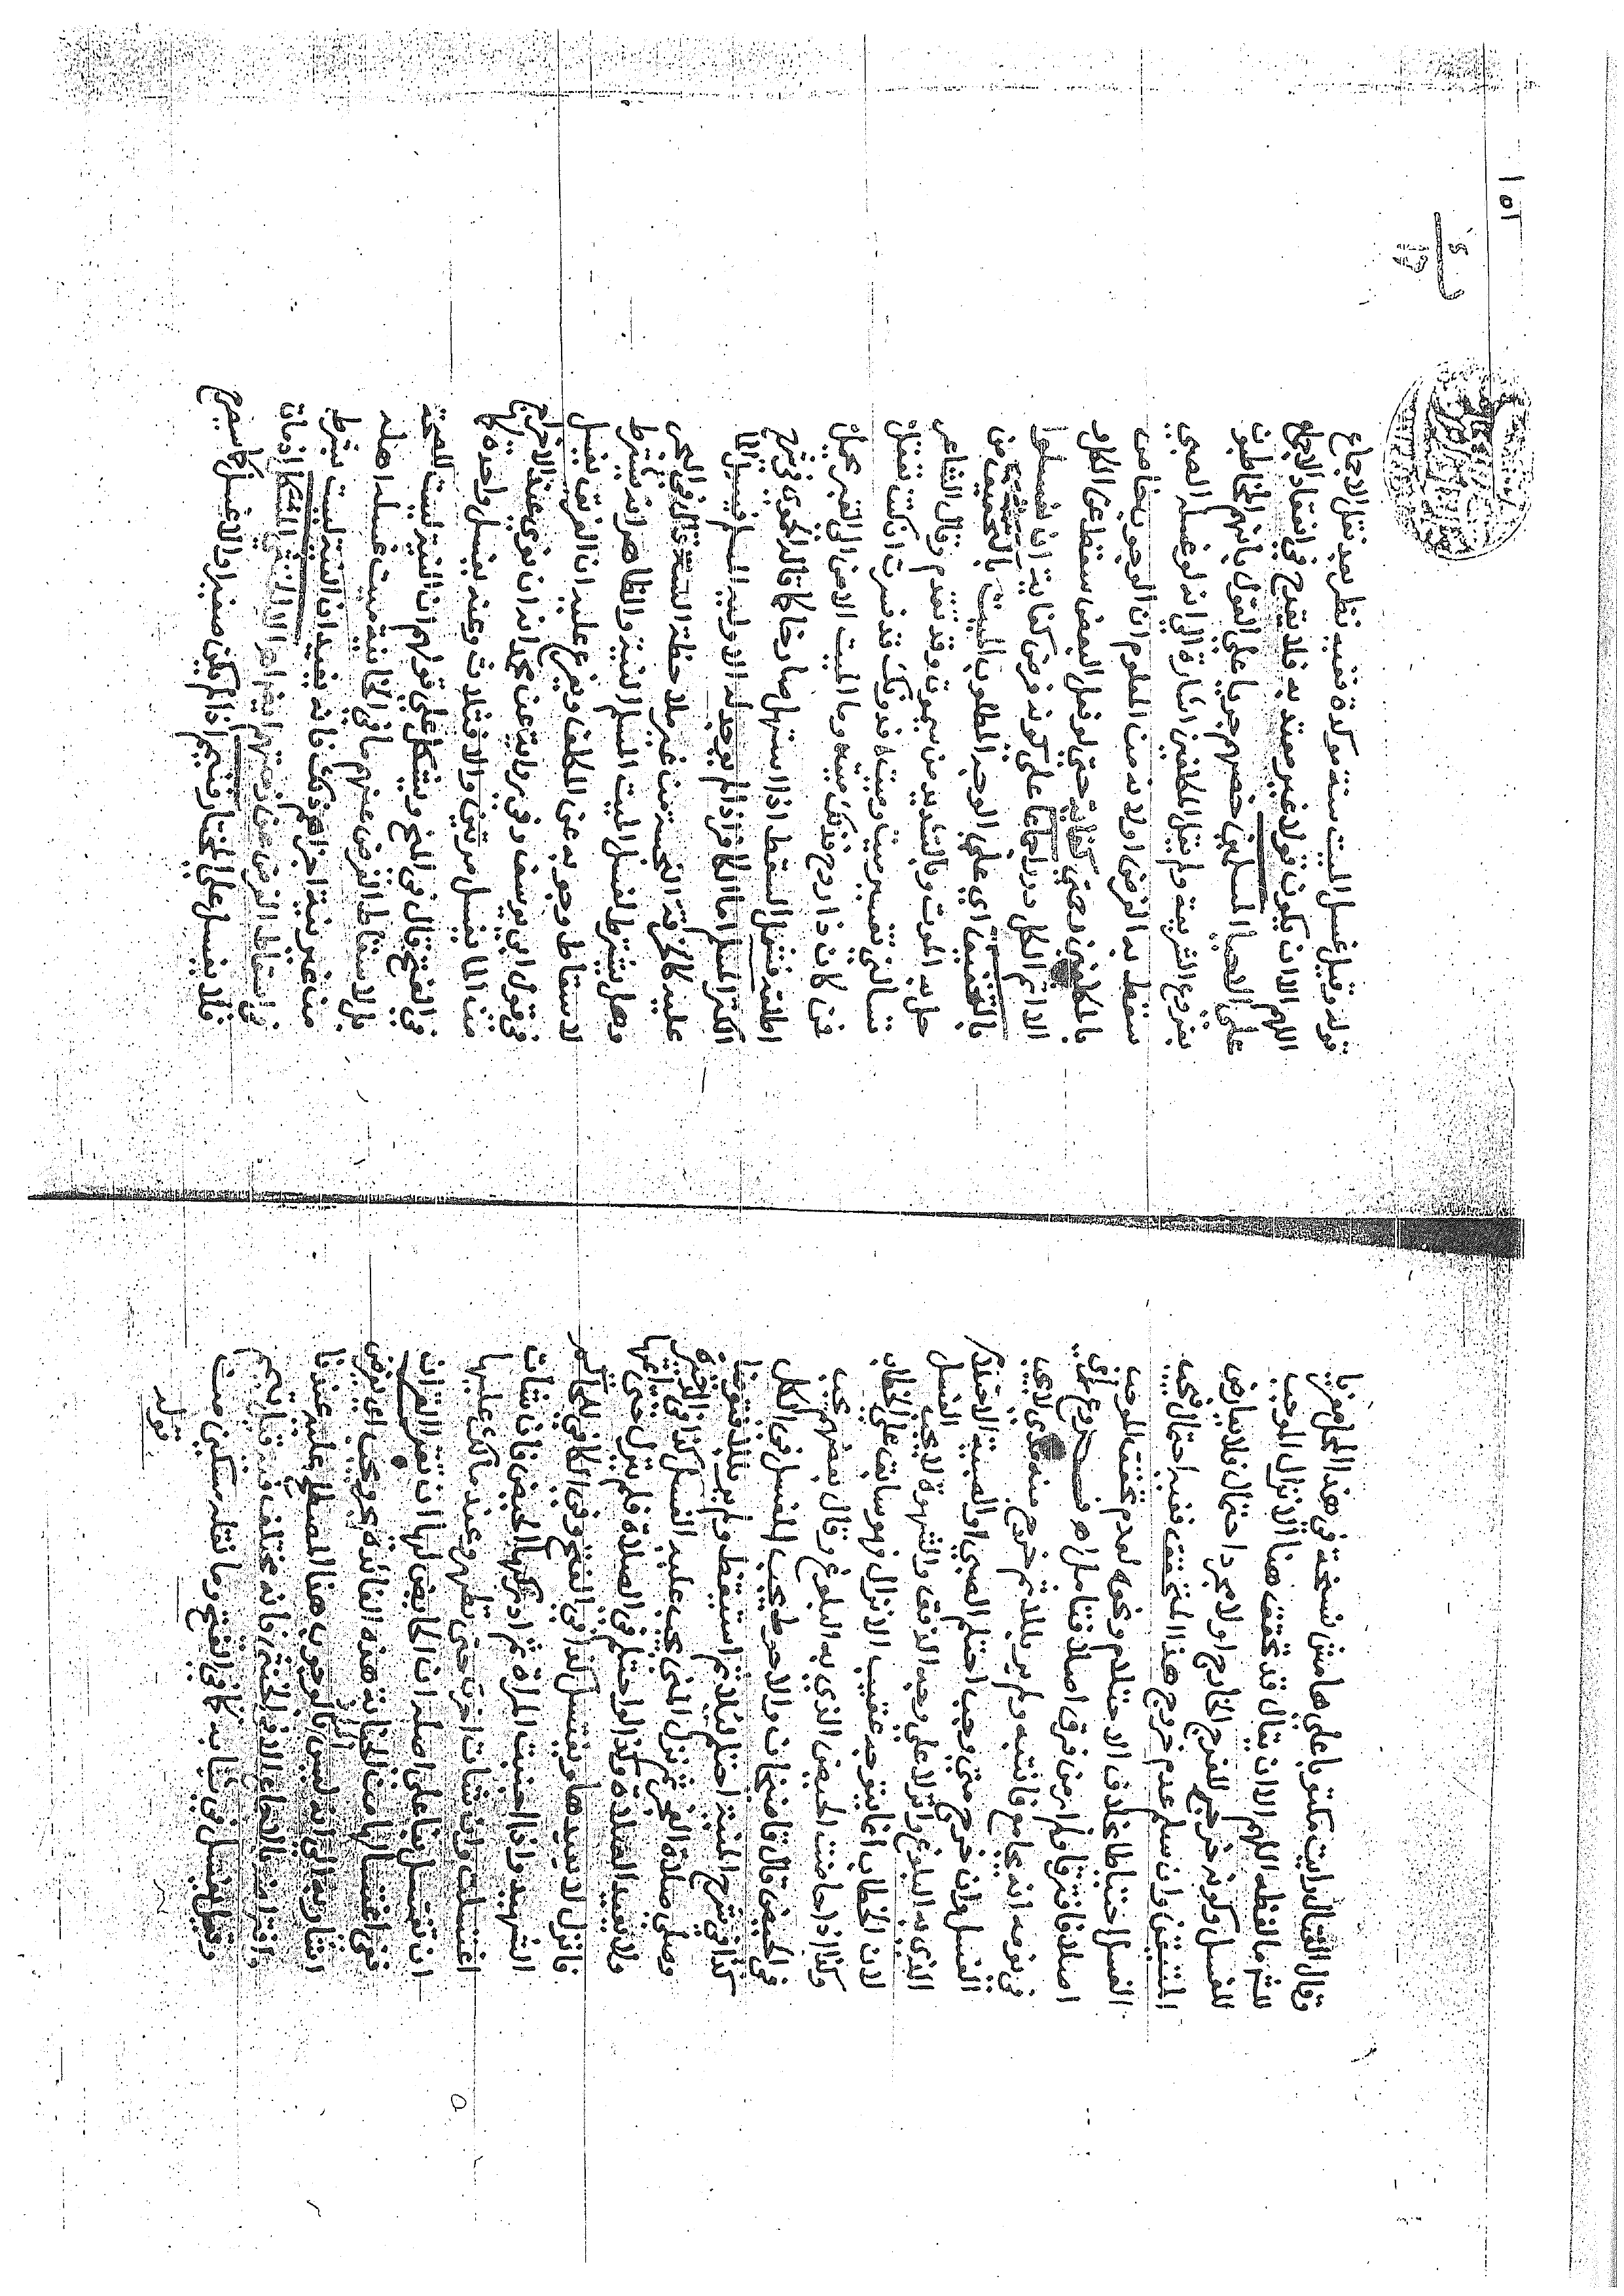 وقال الفتال رايت مكتوبا على هامش نسخة في هذا المحل معزيا
للشر ما لفظه اللهم الا ان يقال قد تحقق هنا الانزال الموجب
للغسل وكونه خرج للفرج الخارج اولا مجرد احتمال فلا يعارض
المتيقن وان سلم عدم خروج هذا المتحقق ففيه احتمال فيجب
الغسل احتياطا بخلاف الاحتلام ونحوه لعدم تحقق الموجب
اصلا فافترقا فلم ار من فرق اصلا فتامل اه فروع راى
في نومه انه يجامع فانتبه ولم ير بللا ثم خرج منه مذي لا يجب
الغسل وان خرج مني وجب احتلم الصبي او الصبية الاحتلام
الذي به البلوغ وانزلا على وجه الدفق والشهوة لا يجب الغسل
لان الخطاب انما يتوجه عقيب الانزال فهو سابق على الخطاب
وكذا اذا حاضت الحيض الذي به البلوغ وقال بعضهم يجب
في الحيض قال قاضيخان والاحوط يجب الغسل في الكل
كذا في شرح المنية احتلم ليلا ثم استيقظ ولم ير بللا فتوضا
وصلى صلاة الفجر ثم نزل المني يجب عليه الغسل كذا في الذخيرة
ولا يعيد الصلاة وكذا لو احتلم في الصلاة فلم ينزل حتى اتمها
فانزل لا يعيدها ويغتسل كذا في الفتح وفي الكافي للحاكم
الشهيد واذا اجنبت المراة ثم ادركها الحيض فان شات
اغتسلت وان شات اخرت حتى تطهر وعند مالك عليها
ان تغتسل بناء على اصله ان الحائض لها ان تقرا القران
ففي اغتسالها من الجنابة هذه الفائدة بحر ويجب اي يفرض
اشار به الى انه ليس المراد بالوجوب هنا المصطلح عليه عندنا
بالاجماع الا في الخنثى فانه مختلف فيه قيل ييمم
وقيل يغسل في ثيابه كما في الفتح وما نقله مسكين من
قوله
قوله وقيل غسل الميت سنة موكدة ففيه نظر بعد نقل الاجماع
اللهم الا ان يكون قولا غير معتد به فلا يقدح في انعقاد الاجماع
على الاحياء المسلمين خصهم جريا على القول بانهم المخاطبون
بفروع الشريعة ولم يقل المكلفين اشارة الى انه لو غسله الصبي
سقط به الفرض من المعلوم ان الوجوب
بالمكلفين كفاية حتى لو فعل البعض سقط عن الكل والا
اثم الكل در اجماعا على كونه فرض كفاية ان يغسلوا
بالتخفيف اي على الوجه المطلوب الميت بالتخفيف من
حل به الموت وبالتشديد من سيموت وقد تقدم وقال الشاعر
تسألني تفسير ميت وميت فدونك قد فسرت ان كنت تعقل
فمن كان ذا روح فذلك ميت وما الميت الا من الى القبر يحمل
اطلقه فشمل السقط اذا استهل صارخا كما قاله الحموي في شرح
الكنز المسلم اما الكافر اذا لم يوجد له الا وليه المسلم فيسيل الماء
عليه كالخرقة النجسة من غير ملاحظة السنة قال في البحر
وهل يشترط لغسل الميت المسلم النية والظاهر انه يشترط
لاسقاط وجوبه عن المكلف ويتفرع عليه ان الغريق يغسل
في قول ابي يوسف وفي رواية عن محمد انه ان نوي عند الاخراج
من الماء يغسل مرتين والا فثلاث وعنه يغسل واحدة كما
في الفتح قال في المنح ويشكل على قولهم ان النية ليست للصحة
بل لاسقاط الفرض عنهم ما في الخانية ميت غسله اهله
من غير نية اجزاهم ذلك فانه يفيد ان النية ليست بشرط
في اسقاط الفرض عن ذمتهم ايضا اه الا الخنثى المشكل اذا مات
فلا يغسل على المختار فييمم اذا لم يكن صغيرا والا غسل كما سيجي